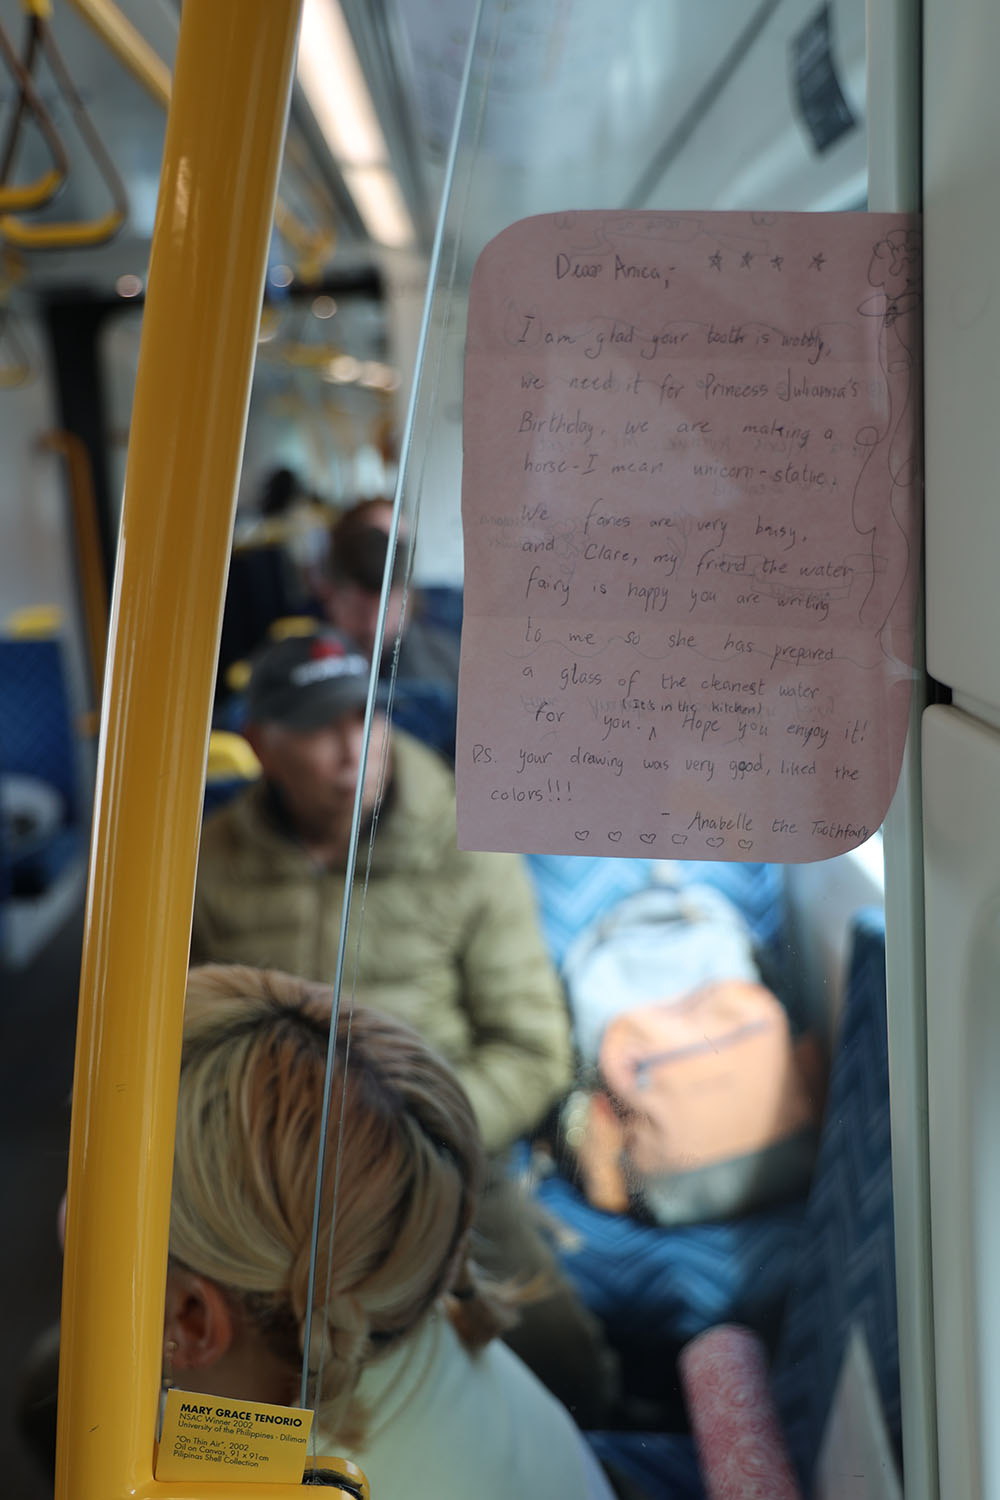 Dear Anica,
I am glad your tooth is wobbly,
we need it for Princess Julianna's
Birthday, we are making a
horse-I mean unicorn-statue.
We faries are very busy,
and Clare, my friend the water
fairy is happy you are writing
to me so she has prepared
a glass of the cleanest water
(It's in the kitchen)
for you. ^ Hope you enjoy it!
P.S. your drawing was very good, liked the
colors!!!
- Anabelle the Toothfairy
MARY GRACE TENORIO
NSAC Winner 2002
University of the Philippines - Diliman
"On Thin Air", 2002
Oil on Canvas, 91 x 91cm
Pilipinas Shell Collection